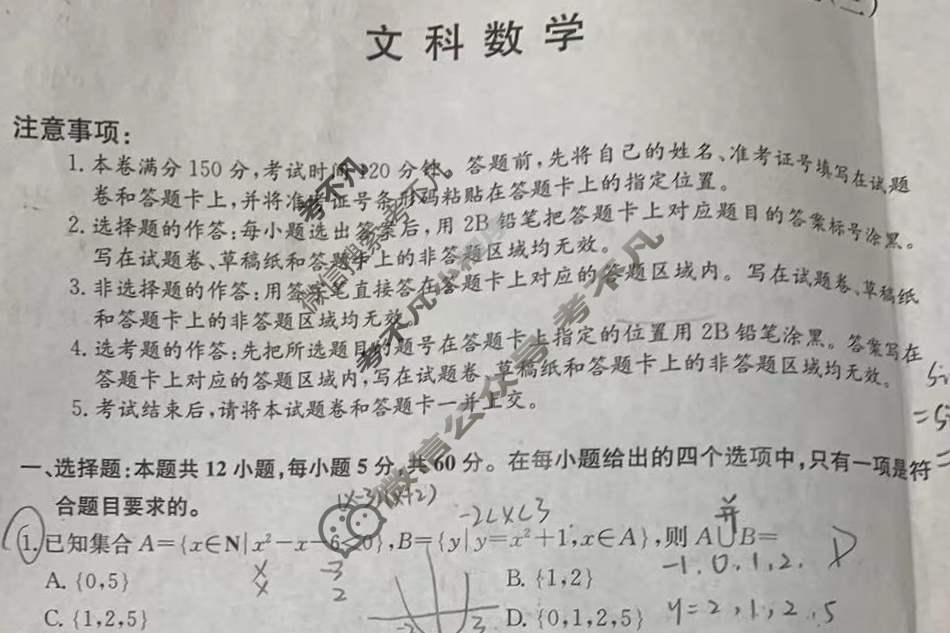 (二)
文科数学
注意事项:
1. 本卷满分 150 分,考试时间 120 分钟。答题前,先将自己的姓名、准考证号填写在试题
卷和答题卡上,并将准考证号条形码粘贴在答题卡上的指定位置。
2. 选择题的作答:每小题选出答案后,用 2B 铅笔把答题卡上对应题目的答案标号涂黑。
写在试题卷、草稿纸和答题卡上的非答题区域均无效。
3. 非选择题的作答:用签字笔直接答在答题卡上对应的答题区域内。写在试题卷、草稿纸
和答题卡上的非答题区域均无效。
4. 选考题的作答:先把所选题目的题号在答题卡上指定的位置用 2B 铅笔涂黑。答案写在
答题卡上对应的答题区域内,写在试题卷、草稿纸和答题卡上的非答题区域均无效。
5. 考试结束后,请将本试题卷和答题卡一并上交。
考不凡
微信搜索考不凡
考不凡小程序
微信公众号考不凡
一、选择题:本题共 12 小题,每小题 5 分,共 60 分。在每小题给出的四个选项中,只有一项是符
合题目要求的。
(x-3)(x+2)
-2<x<3
并
1. 已知集合 A={x∈N|x²-x-6<0},B={y|y=x²+1,x∈A},则 A∪B=
D
-1, 0, 1, 2.
A. {0,5}
x -3
x 2
B. {1,2}
C. {1,2,5}
-2 3
D. {0,1,2,5}
y=2,1,2,5